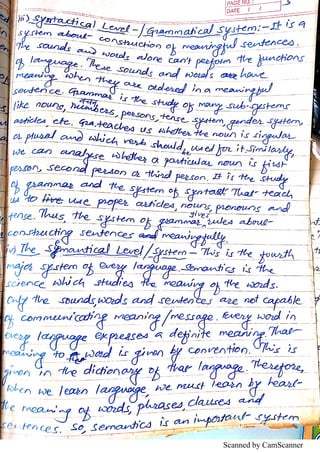 PAGE NO.:
DATE: / /
iii) Syntactical Level -/ Grammatical system:- It is a
system about construction of meaningful sentences.
The sounds and words alone can't perform the functions
of language. These sounds and words are have
meaning when they are ordered in a meaningful
sentence. Grammar is the study of many sub-systems
like nouns, numbers, persons, tense system, gender system,
articles etc. Gra. teaches us whether the noun is singular
or plural and which verb should used for it. Similarly,
we can analyse whether a particular noun is first
person, second person or third person. It is the study
of grammar and the system of syntact That teach
us to use proper articles, nouns, pronouns and
tense. Thus, the system of grammar gives rules about
constructing sentences and meaningfully.
iv) The Semantical Level/System - This is the fourth
major system of Every language. Semantics is the
science which studies the meaning of the words.
Only the sounds, words and sentences are not capable
of communicating meaning/message. Every word in
every language expresses a definite meaning. That
meaning to the word is given by convention. This is
given in the dictionary of that language. Therefore,
when we learn language, we must learn by heart
the meaning of words, phrases, clauses and
sentences. So, semantics is an important system
Scanned by CamScanner